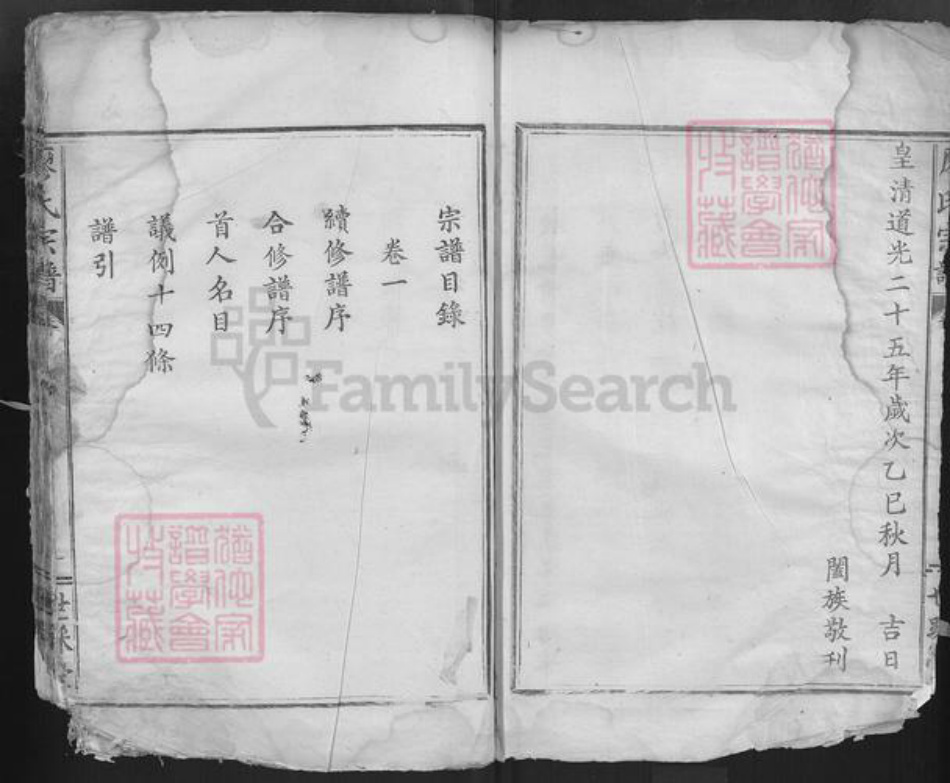 皇清道光二十五年歲次乙巳秋月 吉日
闔族敬刊
宗譜目錄
卷一
續修譜序
合修譜序
首人名目
議例十四條
譜引
廖氏宗譜
世綵堂
FamilySearch